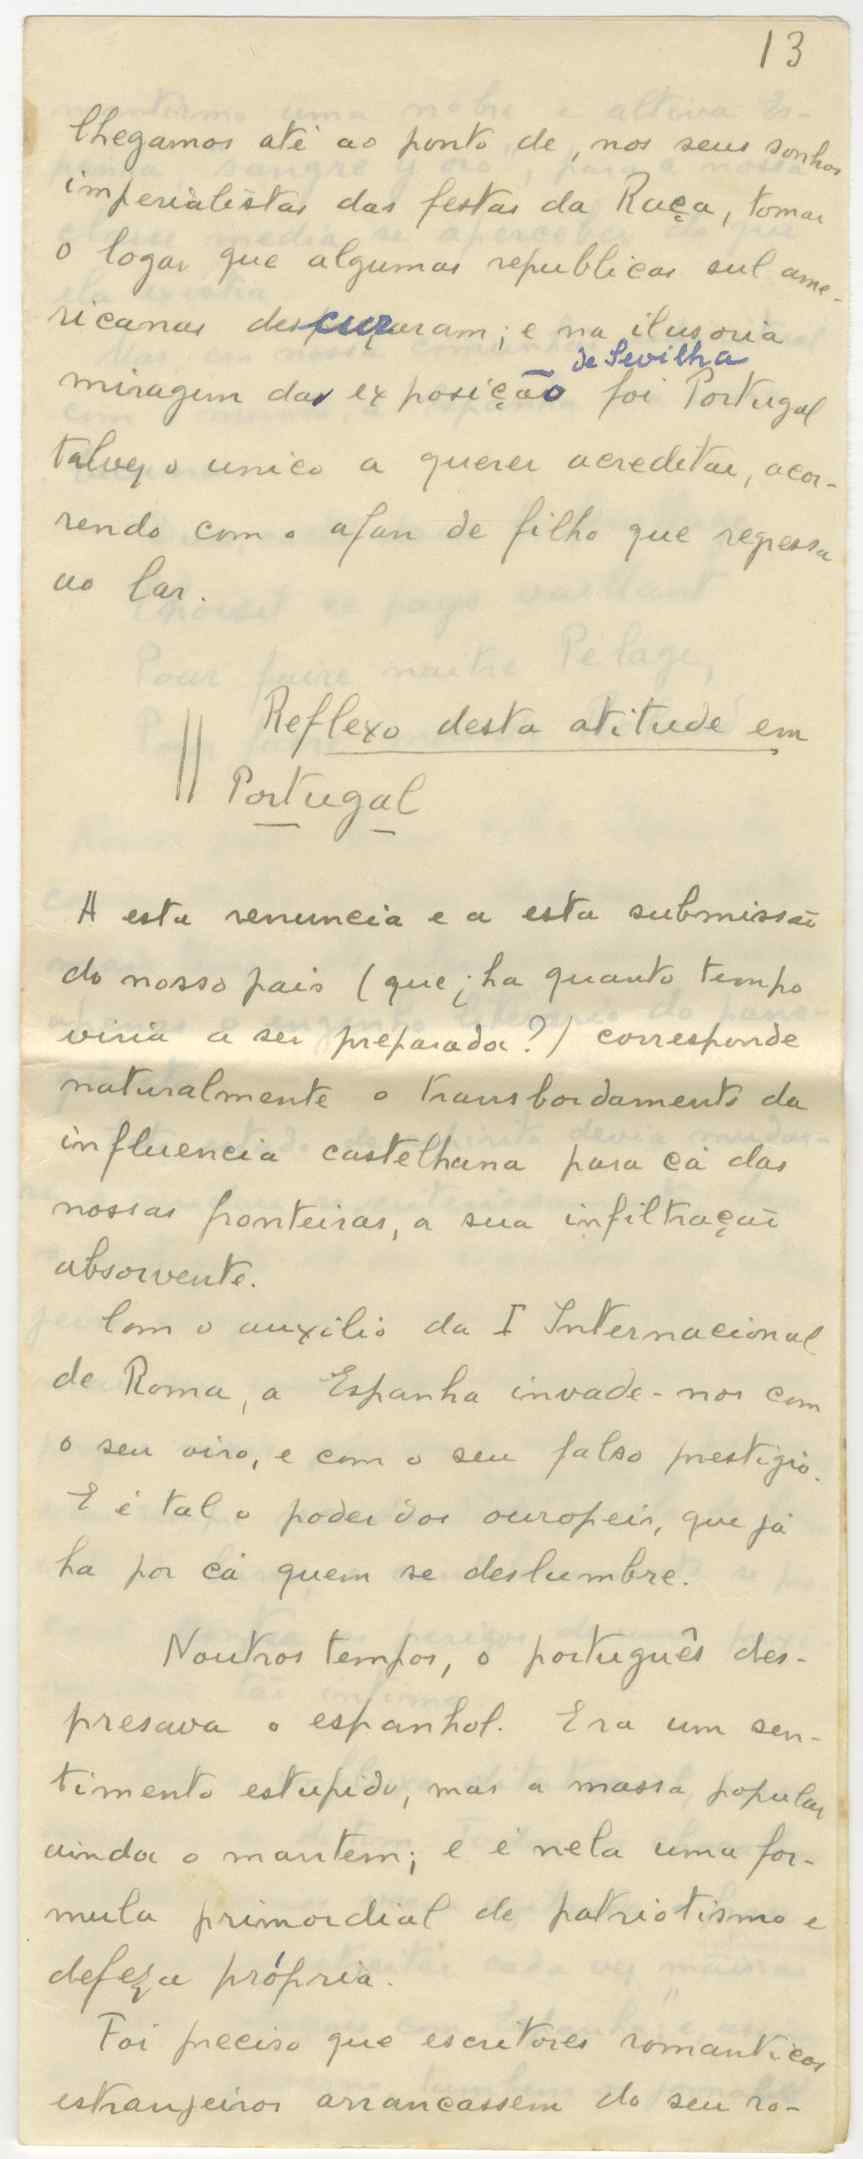 13
Chegamos até ao ponto de, nos seus sonhos
imperialistas das festas da Raça, tomar
o logar que algumas republicas sul ame-
ricanas descuraram; e na ilusoria
miragem da exposição de Sevilha foi Portugal
talvez o unico a querer acreditar, acor-
rendo com o afan de filho que regressa
ao lar.
Reflexo desta atitude em
Portugal
A esta renuncia e a esta submissão
do nosso pais (que ¿ha quanto tempo
viria a ser preparada?) corresponde
naturalmente o transbordamento da
influencia castelhana para cá das
nossas fronteiras, a sua infiltração
absorvente.
Com o auxilio da I Internacional
de Roma, a Espanha invade-nos com
o seu oiro, e com o seu falso prestigio.
E é tal o poder dos ouropeis, que já
ha por cá quem se deslumbre.
Noutros tempos, o português des-
presava o espanhol. Era um sen-
timento estupido, mas a massa popular
ainda o mantem; e é nela uma for-
mula primordial de patriotismo e
defeza própria.
Foi preciso que escritores romanticos
estranjeiros arrancassem do seu ro-